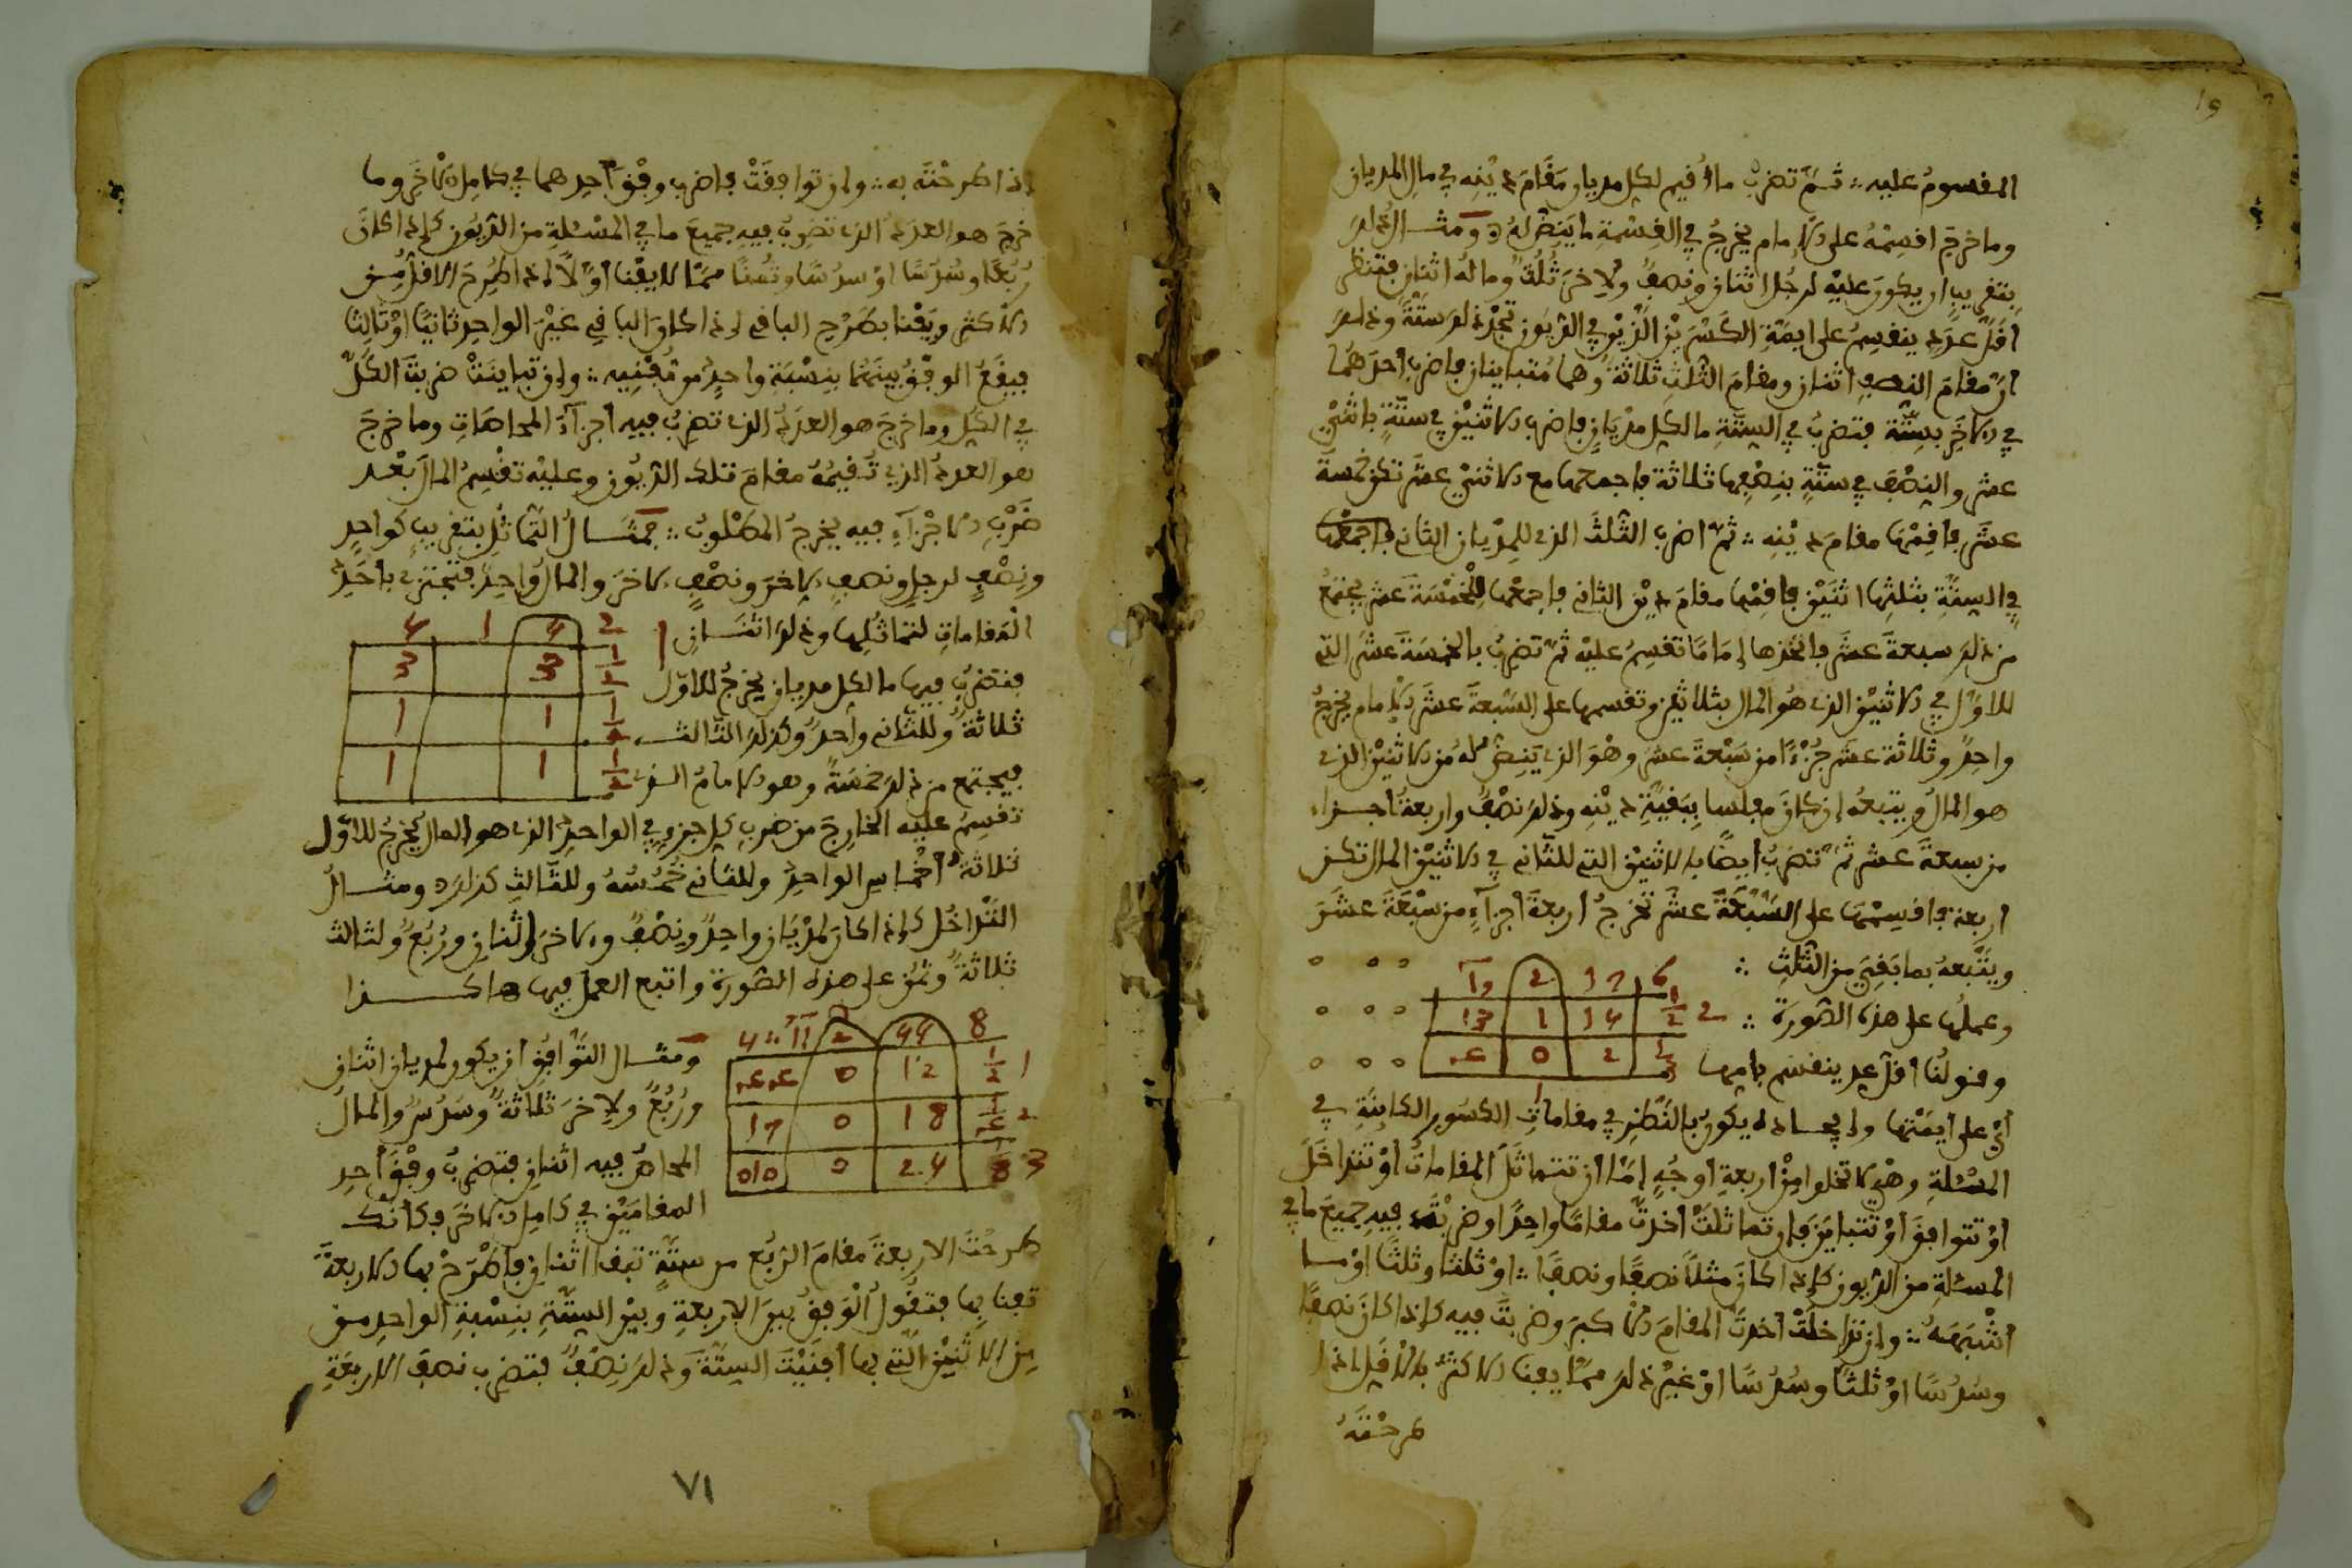 المقسوم عليه ∴ ثم تضرب ما أقيم لكل مديان مقام دينه في مال المديان
وما خرج اقسمه على الإمام يخرج في القسمة ما ينض له ومثال ذلك
بتقريب أن يكون عليه لرجل اثنان ونصف ولآخر ثلث وماله اثنان فتنظر
أقل عدد ينقسم على أيمة الكسرين الذين في الديون تجد ذلك ستة وذلك
أن مقام النصف اثنان ومقام الثلث ثلاثة وهما متباينان فاضرب أحدهما
في الآخر بستة فتضرب في الستة ما لكل مديان فاضرب الاثنين في ستة باثني
عشر والنصف في ستة بنصفها ثلاثة فاجمعها مع الاثني عشر تكن خمسة
عشر فأقمها مقام دينه ∴ ثم اضرب الثلث الذي للمديان الثاني فاجمعها
في الستة بثلثها اثنين فأقمها مقام دين الثاني فاجمعها للخمسة عشر يجتمع
من ذلك سبعة عشر فاتخذها إماما تقسم عليه ثم تضرب بالخمسة عشر التي
للأول في الاثنين الذي هو المال بثلاثين وتقسمها على السبعة عشر الإمام يخرج
واحد وثلاثة عشر جزءا من سبعة عشر وهو الذي ينض له من الاثنين الذي
هو المال ويتبعه إن كان مفلسا ببقية دينه وذلك نصف وأربعة أجزاء
من سبعة عشر ثم تضرب أيضا بالاثنين التي للثاني في الاثنين المال تكن
أربعة فاقسمها على السبعة عشر تخرج أربعة أجزاء من سبعة عشر
ويتبعه بما بقي من الثلث ∴
6 17 2
وعملها على هذه الصورة ∴
2 1/2 1 13
1/3 2 0
وقولنا أقل عدد ينقسم
أي على أيمتها وإيجاده يكون بالنظر في مقامات الكسور الكاينة في
المسئلة وهي لا تخلوا من أربعة أوجه إما أن تتماثل المقامات أو تتداخل
أو تتوافق أو تتباين فإن تماثلت أخذت مقاما واحدا وضربت فيه جميع ما في
المسئلة من الديون كإذا كان مثلا نصفا ونصفا ∴ أو ثلثا وثلثا أو ما
أشبهه ∴ وإن تداخلت أخذت المقام الأكبر وضربت فيه كإذا كان نصفا
وسدسا أو ثلثا وسدسا أو غير ذلك مما يفنا الأكثر بالأقل إذا
طرحته
إذا طرحته به ∴ وإن توافقت فاضرب وفق أحدهما في كامل الآخر وما
خرج هو العدد الذي تضرب فيه جميع ما في المسئلة من الديون كإذا كان
ربعا وسدسا أو سدسا وثمنا مما لا يفنا أولا إذا طرح الأقل من
الأكثر ويفنا بطرح الباقي إذا كان الباقي غير الواحد ثانيا أو ثالثا
فيقع الوفق بينهما بنسبة واحد من مفنيه ∴ وإن تباينت ضربت الكل
في الكل وما خرج هو العدد الذي تضرب فيه أجزاء المحاصات وما خرج
هو العدد الذي تقيمه مقام تلك الديون وعليه تقسم المال بعد
ضرب الأجزاء فيه يخرج المطلوب ∴ فمثال التماثل بتقريب كواحد
ونصف لرجل ونصف لآخر ونصف لآخر والمال واحد فتجتزي بأحد
المقامات لتماثلها وذلك اثنان
2 1
1/2 3 3
فتضرب فيها ما لكل مديان يخرج للأول
1/2 1 1
ثلاثة وللثاني واحد وكذلك الثالث
1/2 1 1
فيجتمع من ذلك خمسة وهو الإمام الذي
تقسم عليه الخارج من ضرب كل جزء في الواحد الذي هو المال يخرج للأول
ثلاثة أخماس الواحد وللثاني خمسه وللثالث كذلك ومثال
التداخل كإذا كان لمديان واحد ونصف ولآخر اثنان وربع ولثالث
ثلاثة وثمن على هذه الصورة واتبع العمل فيها هاكذا
8 44 2
ومثال التوافق أن يكون لمديان اثنان
1 1/2 12 0
وربع ولآخر ثلاثة وسدس والمال
2 18 0 17
المحاص فيه اثنان فتضرب وفق أحد
3 0
المقامين في كامل الآخر فكأنك
طرحت الأربعة مقام الربع من ستة تبقا اثنان فاطرح بها الأربعة
تفنا بها فتقول الوفق بين الأربعة وبين الستة بنسبة الواحد من
من الاثنين التي بها أفنيت الستة وذلك نصف فتضرب نصف الأربعة
٧١